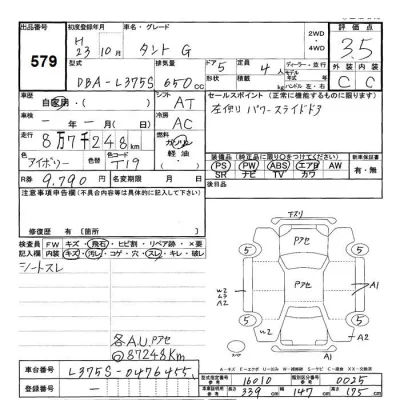 出品番号 初度登録年月 車名・グレード 2WD ・4WD 評価点
579 H23年10月 タントG 3.5
型式 ドア 5 定員 4人 外装 内装
DBA-L375S 650cc 形状 積載 kg ハンドル 左・右 C C
車歴 自家用・( ) シフト AT セールスポイント(正常に機能するものに限ります)
車検 ー年ー月 冷房 AC 左側リパワースライドドア
走行 8万7千248km 燃料 ガソリン 軽油
色 アイボリー 色替 色コード T19 装備品(純正品に限り○をつけてください) 新車保証書
R券 9,790 名変期限 月 日 PS PW ABS エアB AW 有・無
SR ナビ TV カワ
注意事項申告欄(不具合内容等は具体的に記入して下さい) 後日品
修復歴 有[箇所
検査員記入欄 FW キズ・飛石・ヒビ割・リペア跡・×要
内装 キズ・汚レ・コゲ・穴・スレ・キレ・破レ
シートスレ
下スリ
Pアセ
5 5
Pアセ
W2 A1
A2
W2 A2
5 5
A1
各A.U.Pアセ
@87248Km
車台番号 L375S-0476455
登録番号 ー
型式指定番号 16010 類別区分番号 0025
長さ 339 幅 147 高さ 175cm